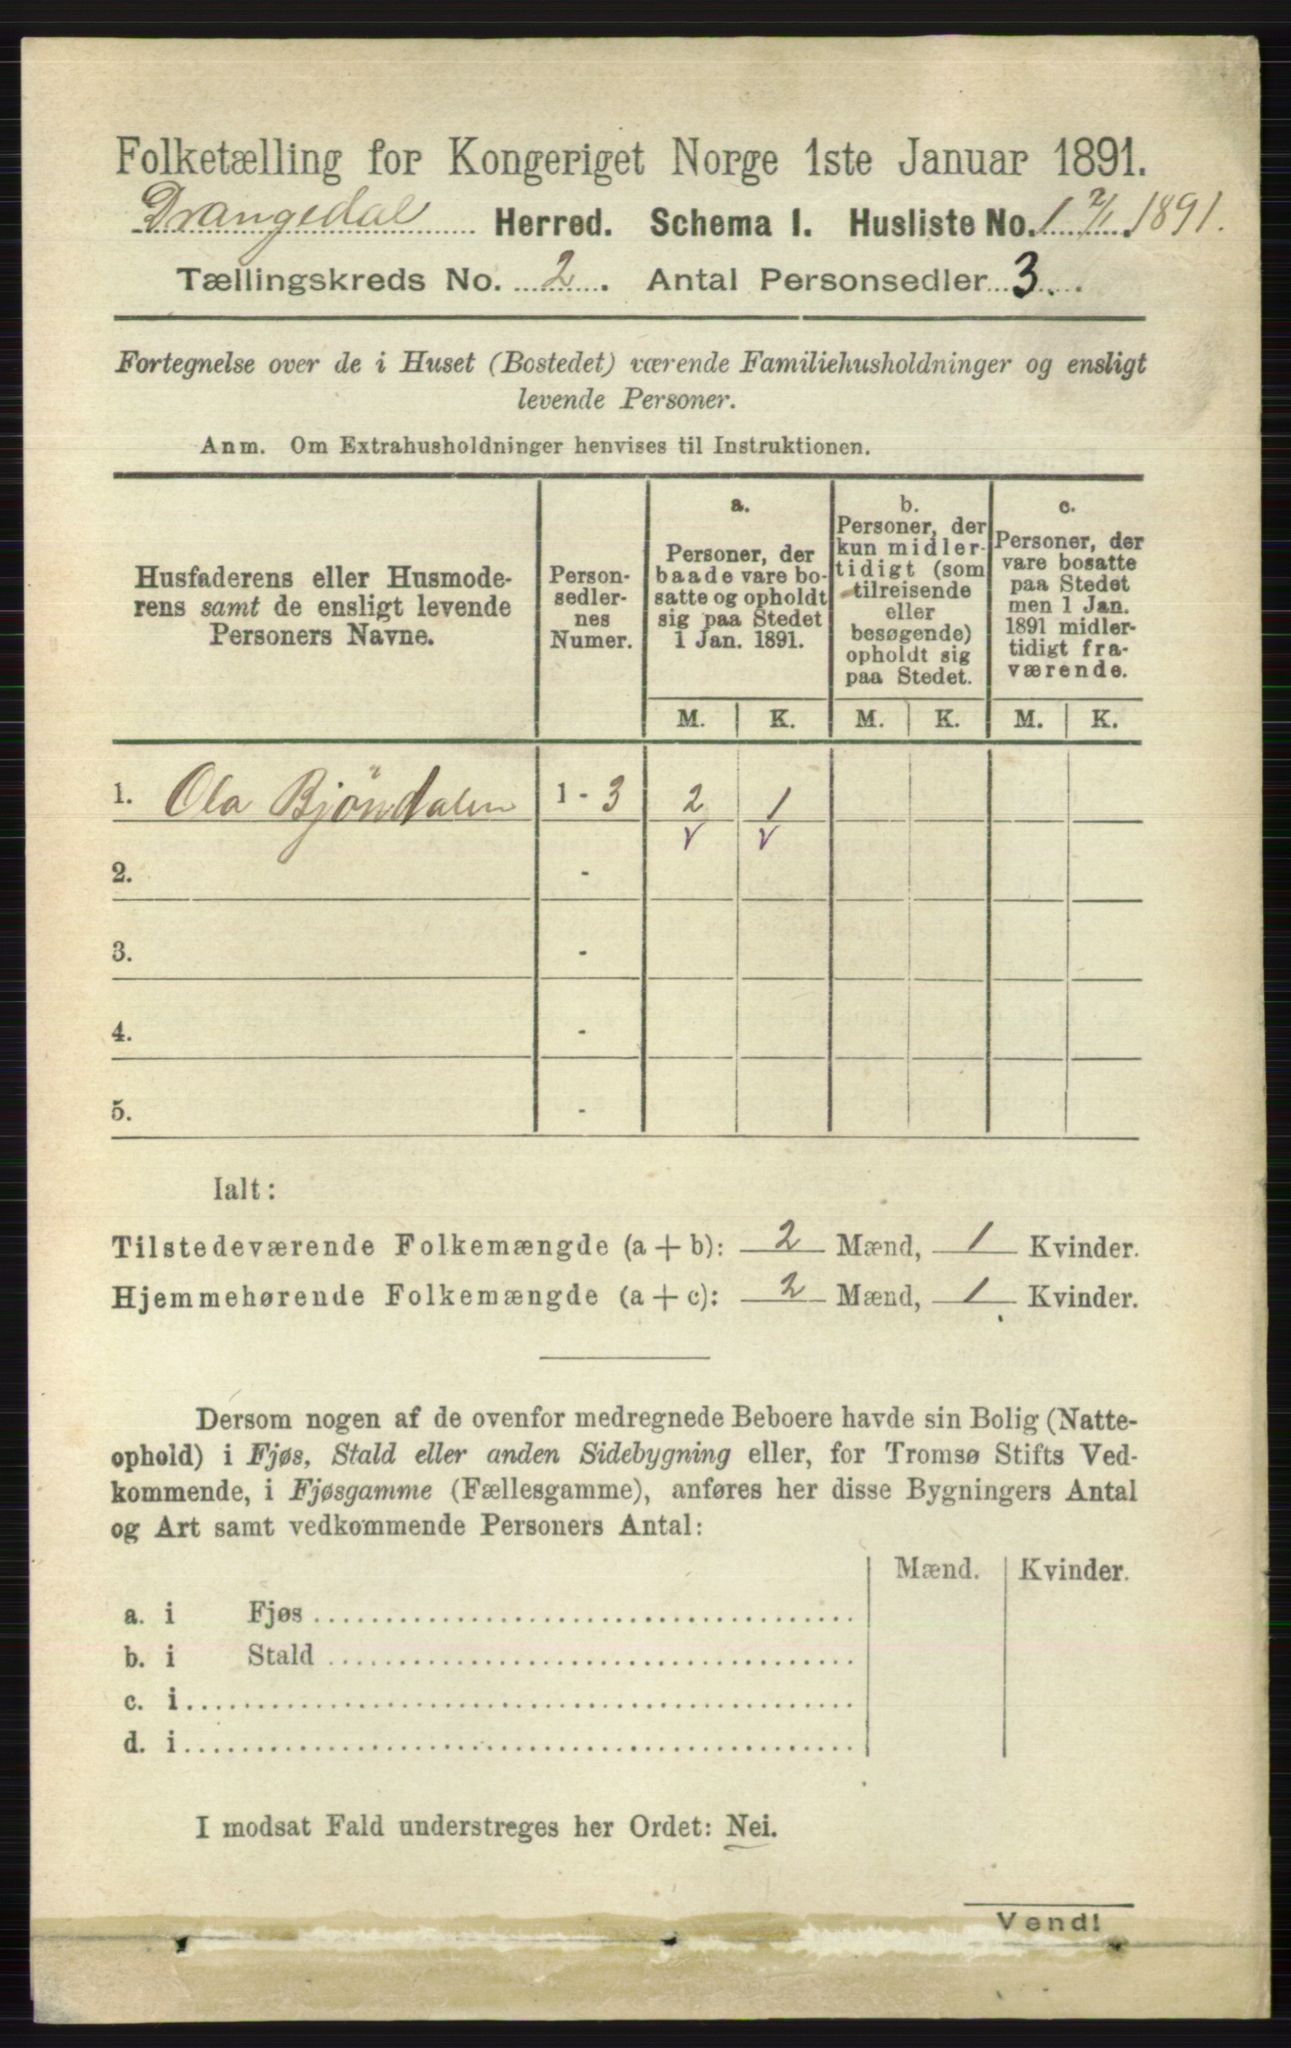 Folketælling for Kongeriget Norge 1ste Januar 1891.
Drangedal Herred. Schema I. Husliste No. 1 2/1 1891.
Tællingskreds No. 2. Antal Personsedler 3.
Fortegnelse over de i Huset (Bostedet) værende Familiehusholdninger og ensligt
levende Personer.
Anm. Om Extrahusholdninger henvises til Instruktionen.
Husfaderens eller Husmode-
rens samt de ensligt levende
Personers Navne.
Person-
sedler-
nes
Numer.
a.
Personer, der
baade vare bo-
satte og opholdt
sig paa Stedet
1 Jan. 1891.
b.
Personer, der
kun midler-
tidigt (som
tilreisende
eller
besøgende)
opholdt sig
paa Stedet.
c.
Personer, der
vare bosatte
paa Stedet
men 1 Jan.
1891 midler-
tidigt fra-
værende.
M. K. M. K. M. K.
1. Ola Bjöndalen 1 - 3 2 1
v v
2. -
3. -
4. -
5. -
Ialt:
Tilstedeværende Folkemængde (a + b): 2 Mænd, 1 Kvinder.
Hjemmehørende Folkemængde (a + c): 2 Mænd, 1 Kvinder.
Dersom nogen af de ovenfor medregnede Beboere havde sin Bolig (Natte-
ophold) i Fjøs, Stald eller anden Sidebygning eller, for Tromsø Stifts Ved-
kommende, i Fjøsgamme (Fællesgamme), anføres her disse Bygningers Antal
og Art samt vedkommende Personers Antal:
Mænd. Kvinder.
a. i Fjøs
b. i Stald
c. i
d. i
I modsat Fald understreges her Ordet: Nei.
Vend!